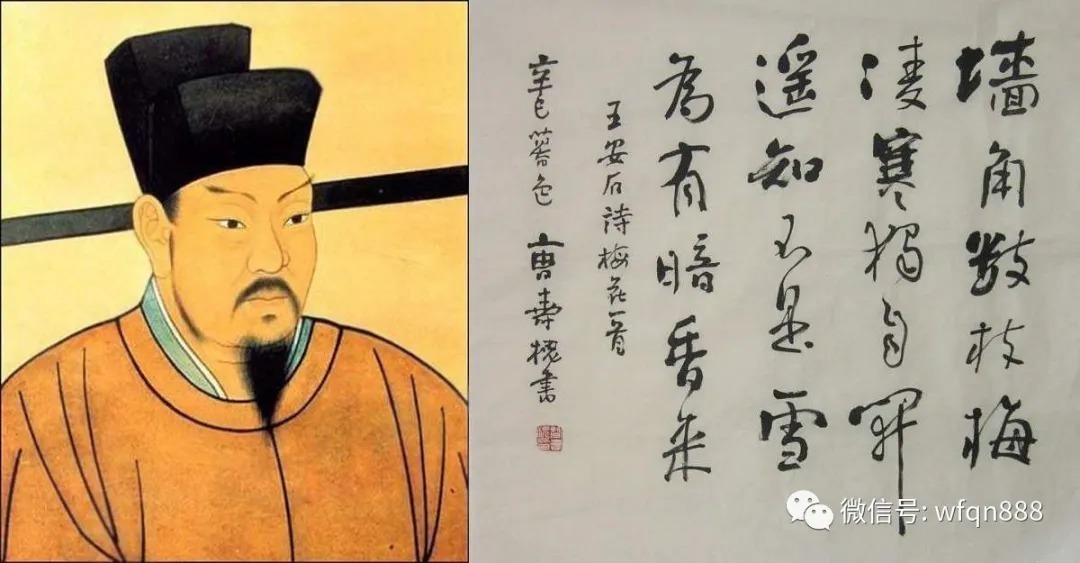 墙角数枝梅
凌寒独自開
遥知不是雪
為有暗香来
王安石詩梅花一首
辛巳暮色
曹寿槐書
微信号: wfqn888